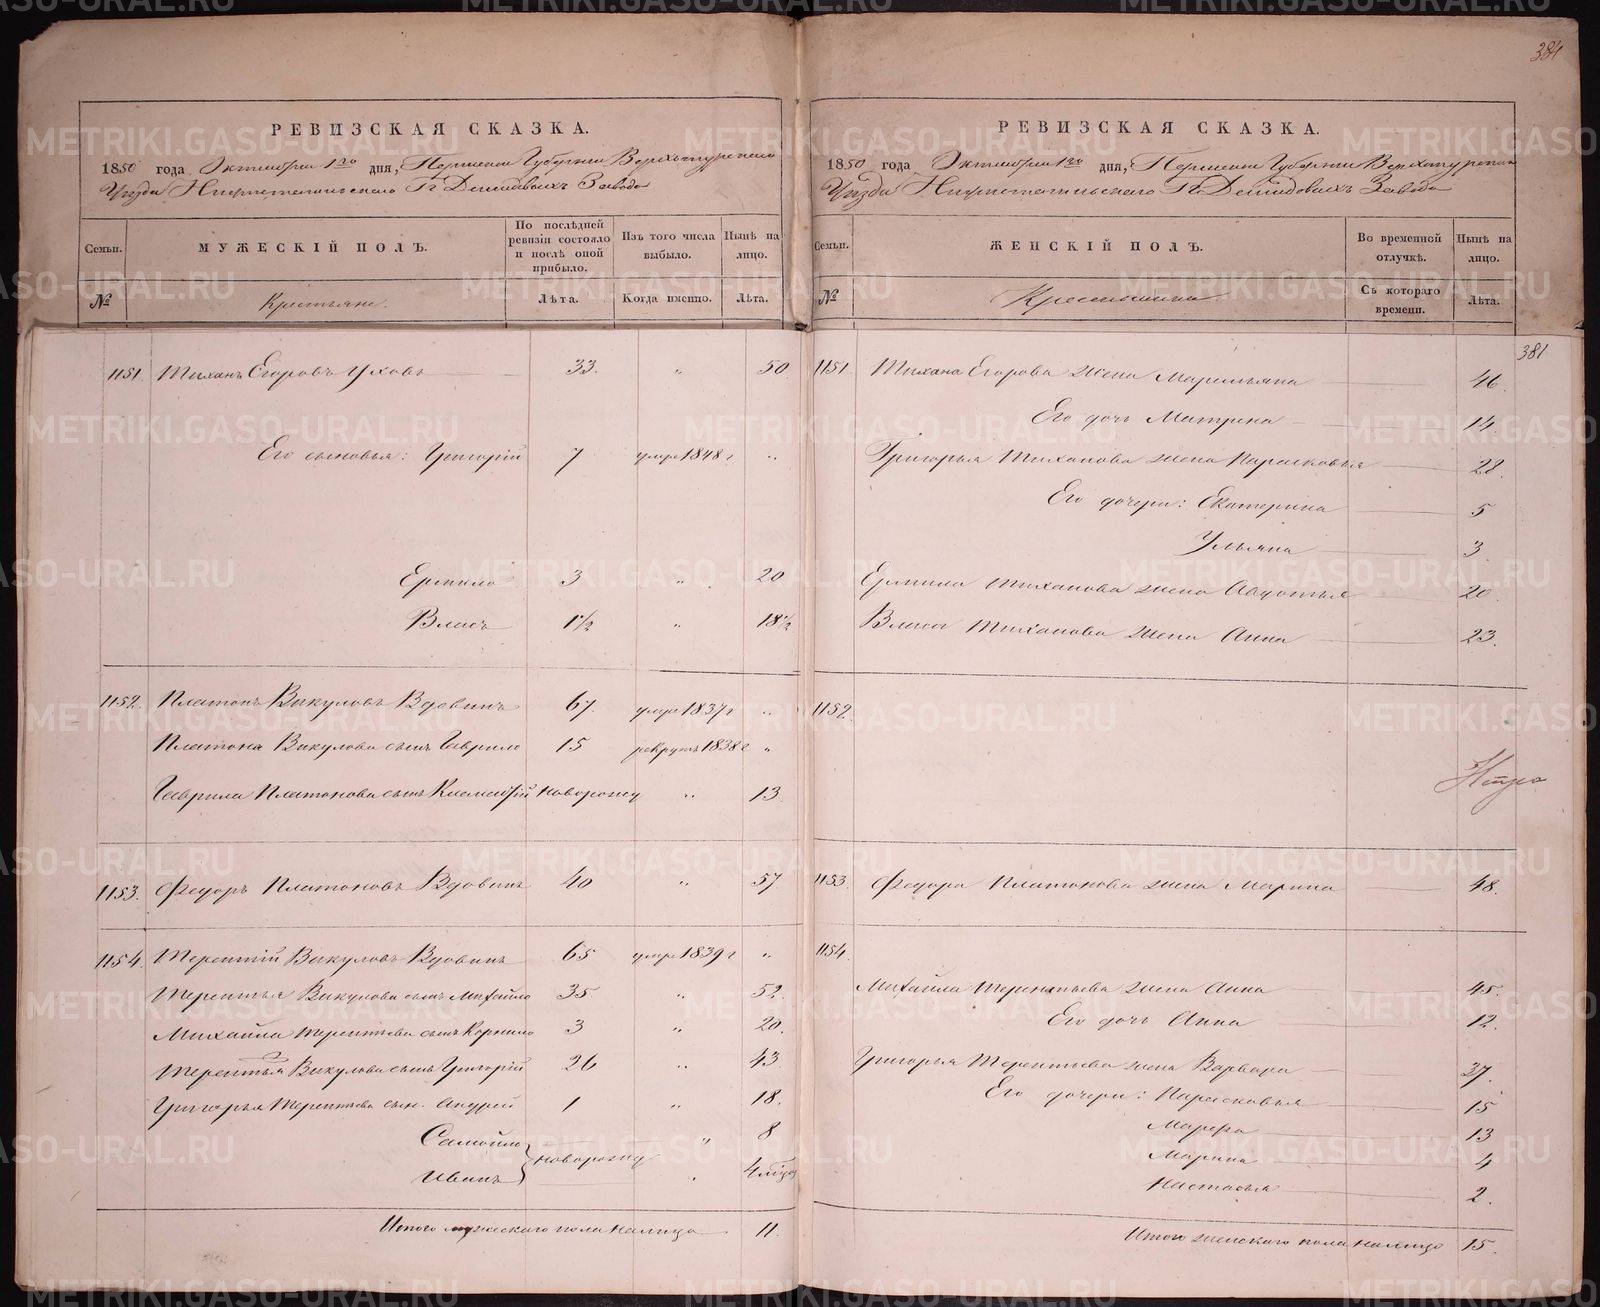 384
РЕВИЗСКАЯ СКАЗКА.
1850 года Октября 1го дня, Пермской Губернии Верхотурскаго
Уезда Нижнетагильскаго Гг. Демидовыхъ Завода
Семьи. МУЖЕСКІЙ ПОЛЪ. По послѣдней ревизіи состояло и послѣ оной прибыло. Изъ того числа выбыло. Нынѣ на лицо.
№ Крестьяне. Лѣта. Когда именно. Лѣта.
1151. Тиханъ Егоровъ Уховъ 33. " 50
Его сыновья: Григорій 7 умре 1848 г "
Ермило 3 " 20
Власъ 1 1/2 " 18 1/2
1152. Платонъ Викуловъ Вдовинъ 67. умре 1837 г "
Платона Викулова сынъ Гаврило 15 рекрутъ 1838 г "
Гаврила Платонова сынъ новорожд " 13
1153. Федоръ Платоновъ Вдовинъ 40 " 57.
1154. Терентій Викуловъ Вдовинъ 65 умре 1839 г "
Терентья Викулова сынъ Михайло 35 " 52.
Михайла Терентьева сынъ Корнило 3 " 20.
Терентья Викулова сынъ Григорій 26 " 43
Григорья Терентьева сын. Андрей 1 " 18.
Самойло новорожд " 8
Иванъ " 4 мѣся
Итого мужескаго пола налицо 11.
РЕВИЗСКАЯ СКАЗКА.
1850 года Октября 1го дня, Пермской Губернии Верхотурскаго
Уезда Нижнетагильскаго Гг. Демидовыхъ Завода
Семьи. ЖЕНСКІЙ ПОЛЪ. Во временной отлучкѣ. Нынѣ на лицо.
№ Съ котораго времени. Лѣта.
381
1151 Тихана Егорова жена Маремьяна 46.
Его дочь Матрена 14.
Григорья Тиханова жена Парасковья 28.
Его дочери: Екатерина 5
Ульяна 3
Ермила Тиханова жена Авдотья 20.
Власа Тиханова жена Анна 23.
1152.
1153. Федора Платонова жена Марина 48.
1154.
Михайла Терентьева жена Анна 45.
Его дочь Анна 12.
Григорья Терентьева жена Варвара 37.
Его дочери: Парасковья 15
Марфа 13
Марина 4
Настасья 2.
Итого женскаго пола налицо 15.
METRIKI.GASO-URAL.RU